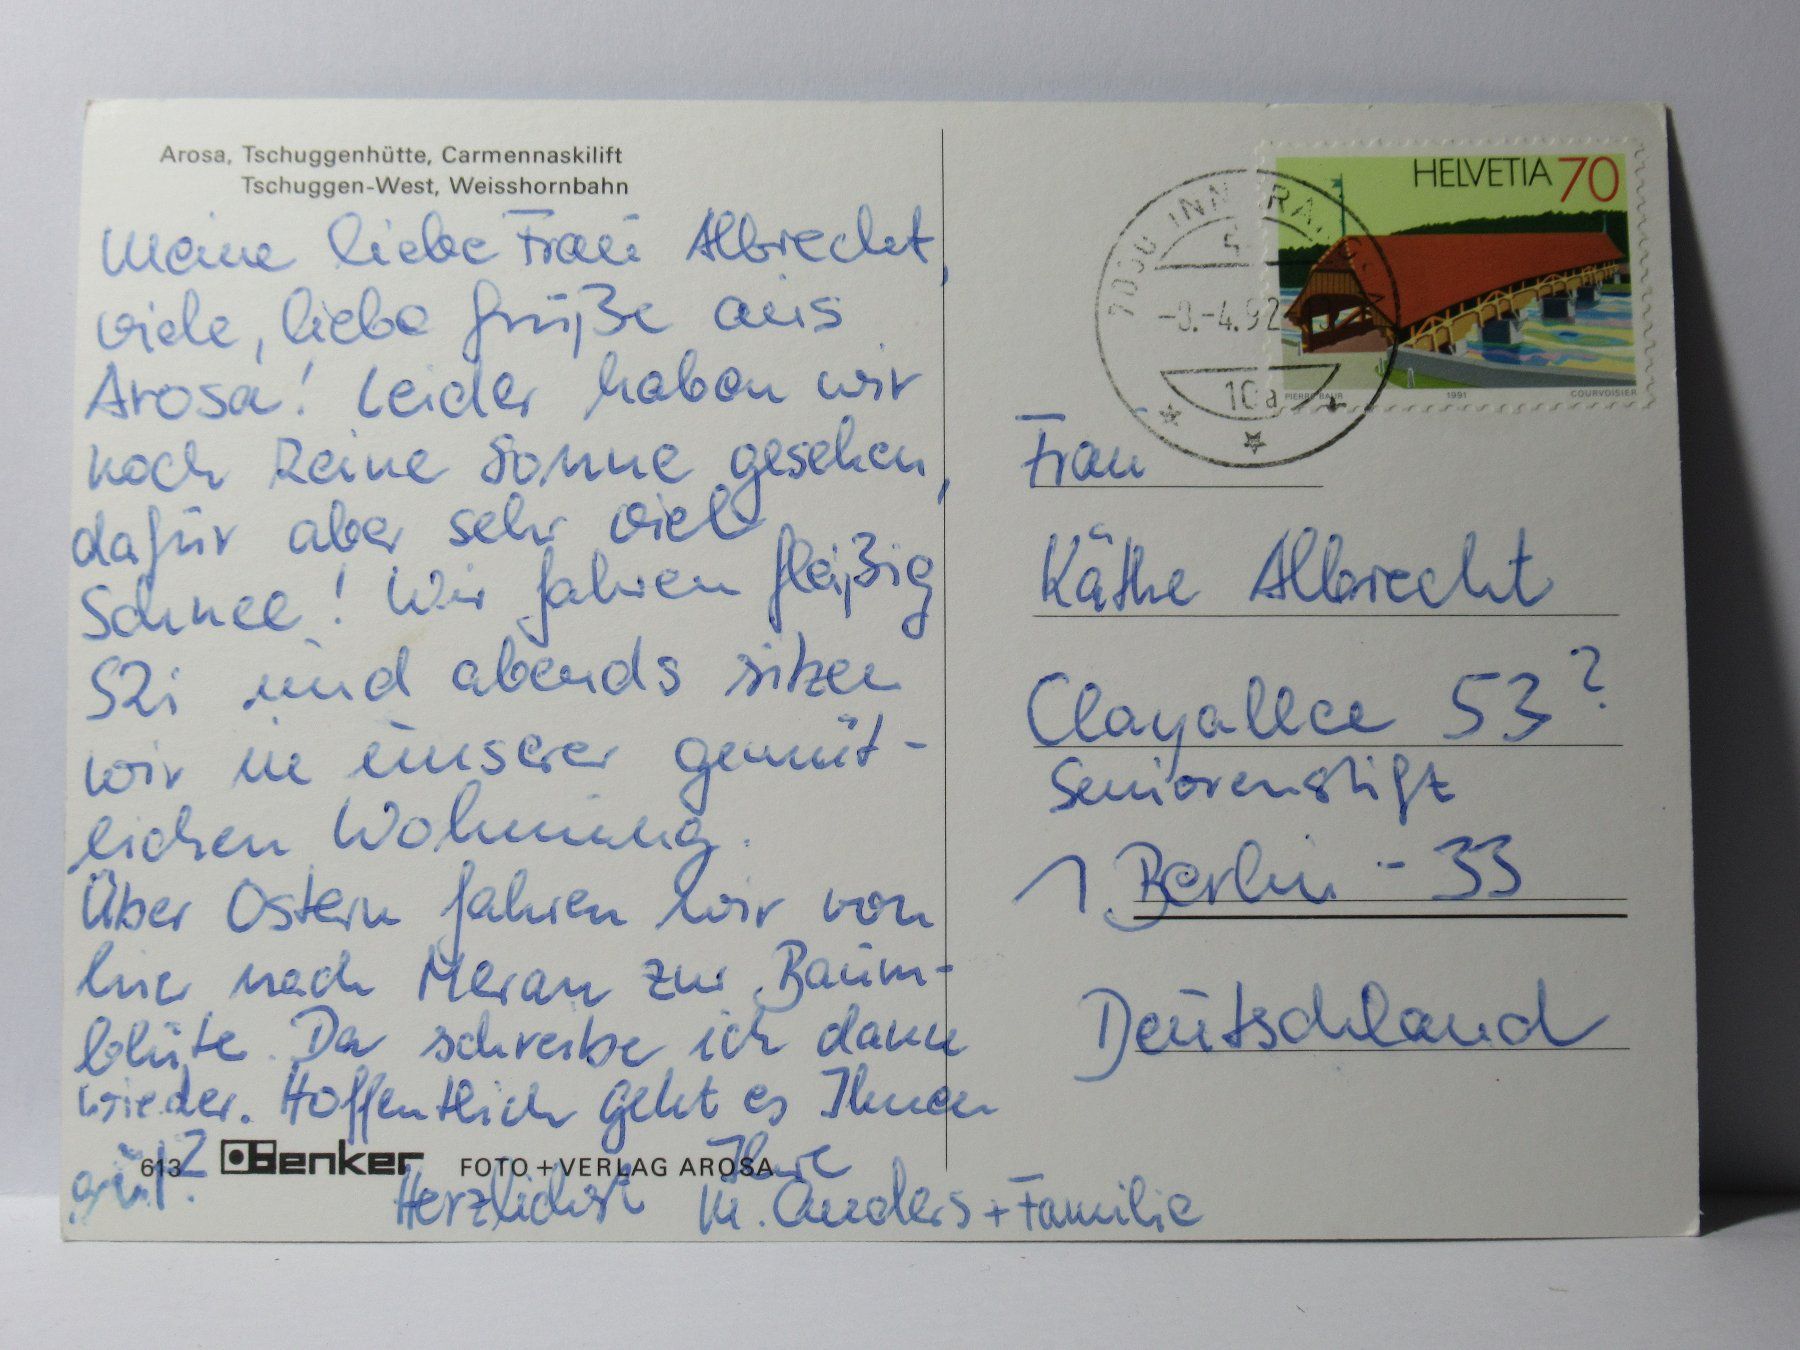 Arosa, Tschuggenhütte, Carmennaskilift
Tschuggen-West, Weisshornbahn
Meine liebe Frau Albrecht,
viele, liebe Grüße aus
Arosa! Leider haben wir
noch keine Sonne gesehen,
dafür aber sehr viel
Schnee! Wir fahren fleißig
Ski und abends sitzen
wir in unserer gemüt-
lichen Wohnung.
Über Ostern fahren wir von
hier nach Meran zur Baum-
blüte. Da schreibe ich dann
wieder. Hoffentlich geht es Ihnen
gut?
Ihre
Herzlichst M. Anders + Familie
613 Benker FOTO + VERLAG AROSA
HELVETIA 70
PIERRE BAUR 1991 COURVOISIER
-4.92
10a
Frau
Käthe Albrecht
Clayallee 53?
Seniorenstift
1 Berlin - 33
Deutschland